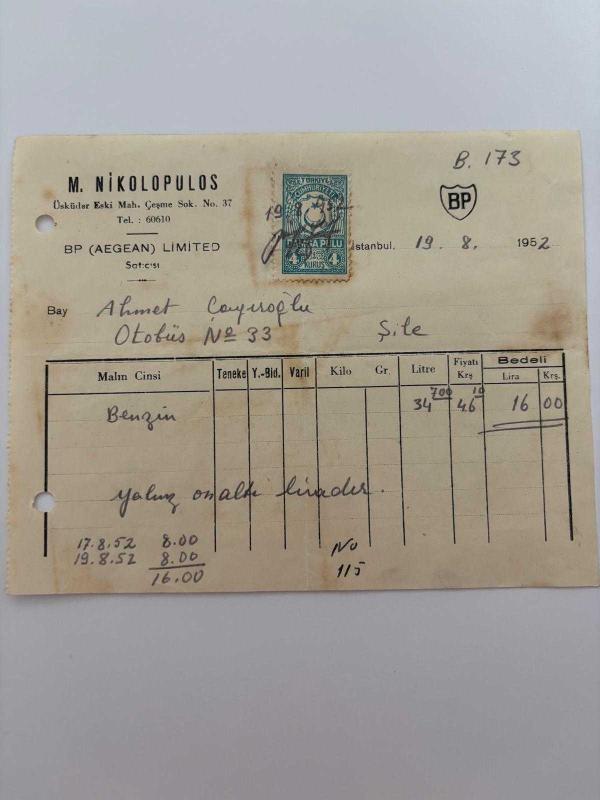 B. 173
M. NİKOLOPULOS
Üsküdar Eski Mah. Çeşme Sok. No. 37
Tel. : 60610
BP (AEGEAN) LIMITED
Satıcısı
TÜRKİYE CUMHURİYETİ
19 8 952
DAMGA PULU
4 4
KURUŞ
BP
İstanbul. 19. 8. 1952
Bay Ahmet Çayıroğlu
Otobüs No 33 Şile
Malın Cinsi Teneke Y.-Bid. Varil Kilo Gr. Litre Fiyatı Krş Bedeli Lira Krş.
Benzin 34 700 46 10 16 00
Yalnız onaltı liradır.
17.8.52 8.00
19.8.52 8.00
16.00
No
115